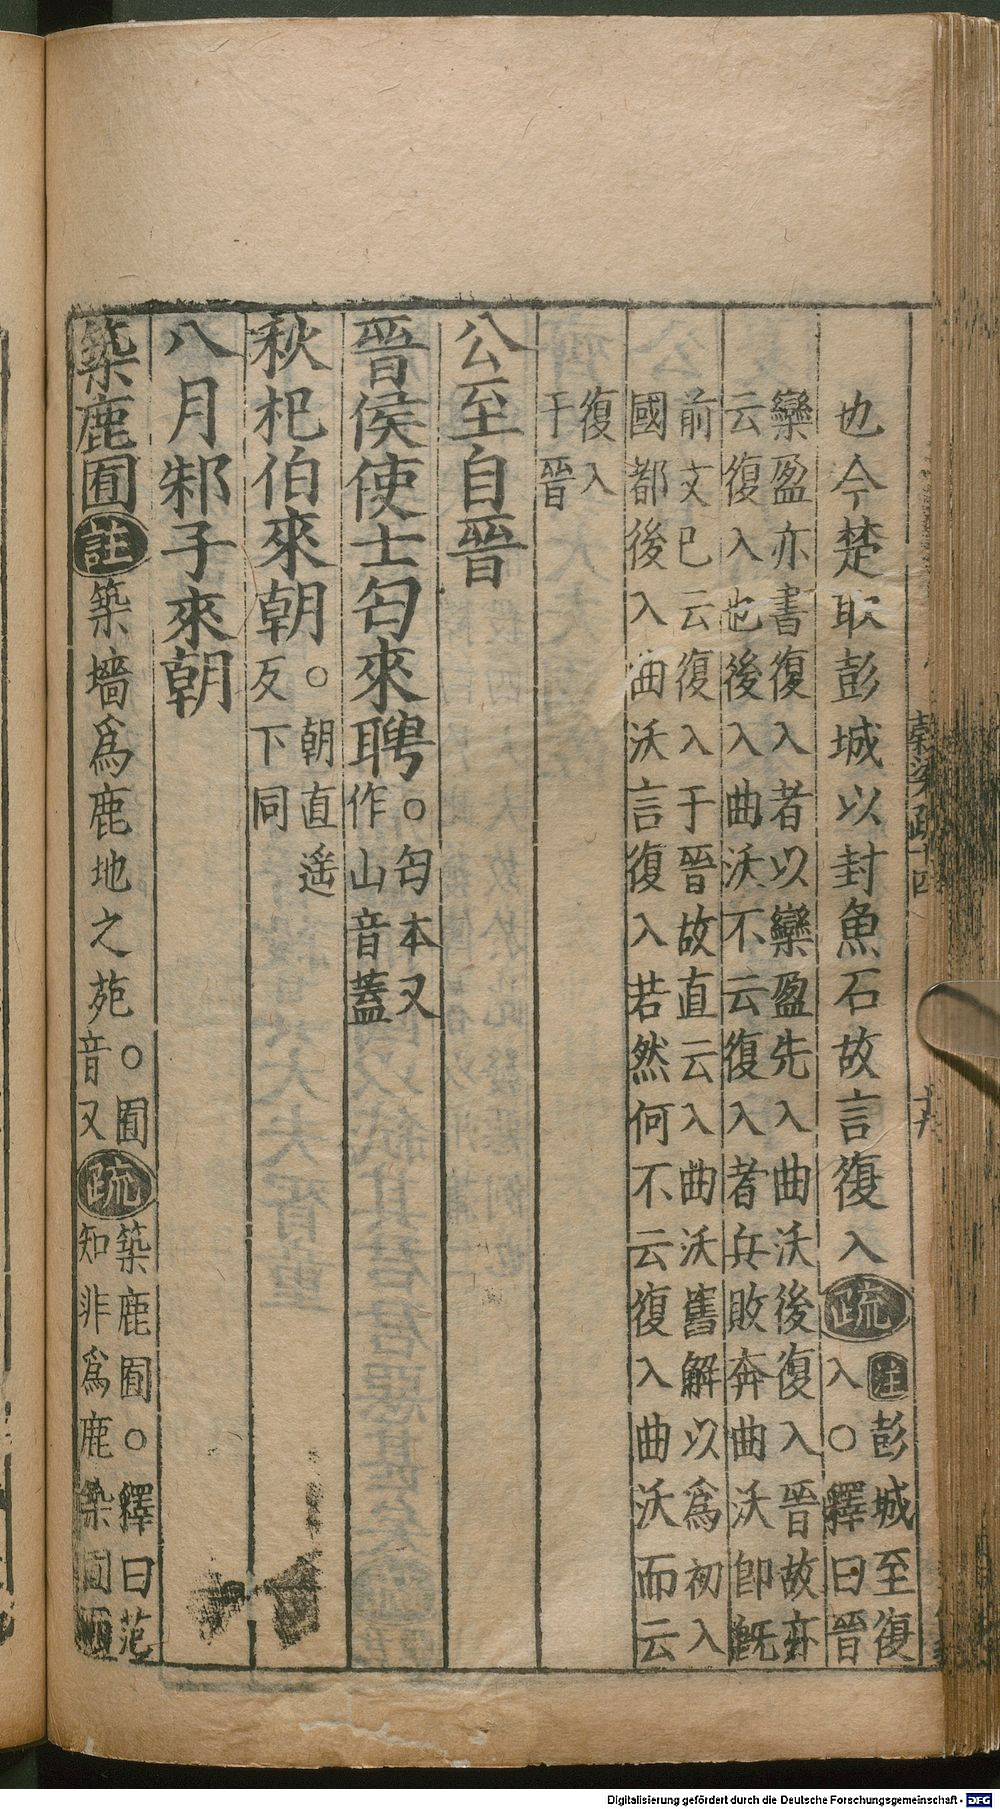 也今楚取彭城以封魚石故言復入疏
註彭城至復
入○釋曰晉
欒盈亦書復入者以欒盈先入曲沃後復入晉故亦
云復入也後入曲沃不云復入者兵敗奔曲沃即旣
前文已云復入于晉故直云入曲沃舊解以爲初入
國都後入曲沃言復入若然何不云復入曲沃而云
復入
于晉
公至自晉
晉侯使士匄來聘
○匄本又
作山音蓋
秋杞伯來朝
○朝直遥
反下同
八月邾子來朝
築鹿囿註築墻爲鹿地之苑
○囿
音又
疏
築鹿囿○釋曰范
知非爲鹿築囿
穀梁疏十四
Digitalisierung gefördert durch die Deutsche Forschungsgemeinschaft - DFG